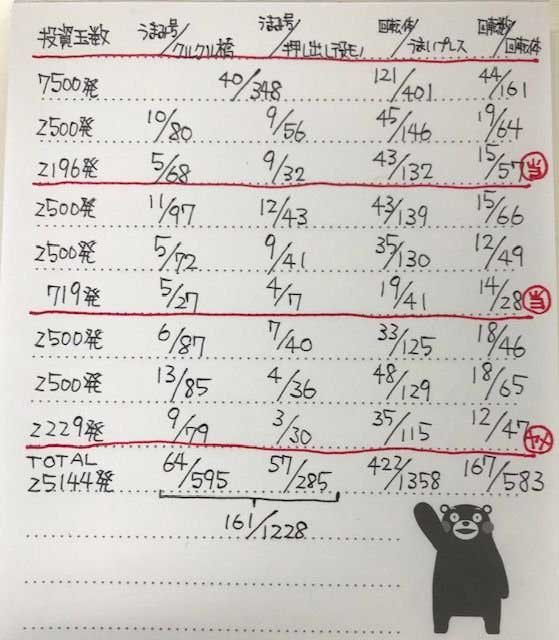 投資玉数 うまみ号/クルクル橋 うまみ号/押し出し役モノ 回転体/うまいプレス 回転数/回転体
7500発 40/348 121/401 44/161
2500発 10/80 9/56 45/146 19/64
2196発 5/68 9/32 43/132 15/57 当
2500発 11/97 12/43 43/139 15/66
2500発 5/72 9/41 35/130 12/49
719発 5/27 4/7 19/41 14/28 当
2500発 6/87 7/40 33/125 18/46
2500発 13/85 4/36 48/129 18/65
2229発 9/79 3/30 35/115 12/47 ヤメ
TOTAL
25144発 64/595 57/285 422/1358 167/583
161/1228